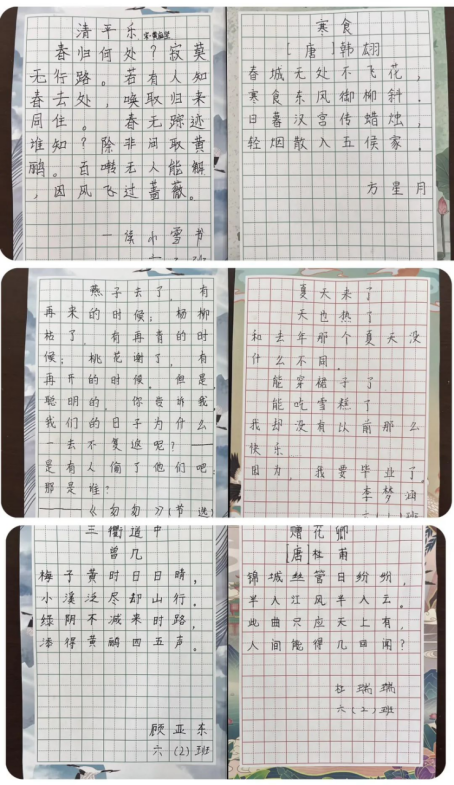 清平乐
宋·黄庭坚
春归何处？寂莫
无行路。若有人知
春去处，唤取归来
同住。 春无踪迹
谁知？除非问取黄
鹂。百啭无人能解
，因风飞过蔷薇。
寒食
[唐]韩翃
春城无处不飞花，
寒食东风御柳斜．
日暮汉宫传蜡烛，
轻烟散入五侯家．
方星月
燕子去了，有
再来的时候；杨柳
枯了，有再青的时
候；桃花谢了，有
再开的时候。但是，
聪明的，你告诉我，
我们的日子为什么
一去不复返呢？
是有人偷了他们吧：
那是谁？
《匆匆》（节选
夏天来了
天也热了
和去年那个夏天没
什么不同．
能穿裙子了
能吃雪糕了
我却没有以前那么
快乐
因为，我要毕业了。
李梦涵
三衢道中
曾几
梅子黄时日日晴，
小溪泛尽却山行．
绿阴不减来时路，
添得黄鹂四五声。
顾亚东
六（2）班
赠花卿
[唐]杜甫
锦城丝管日纷纷，
半入江风半入云。
此曲只应天上有，
人间能得几回闻？
杜瑞瑞
六（2）班